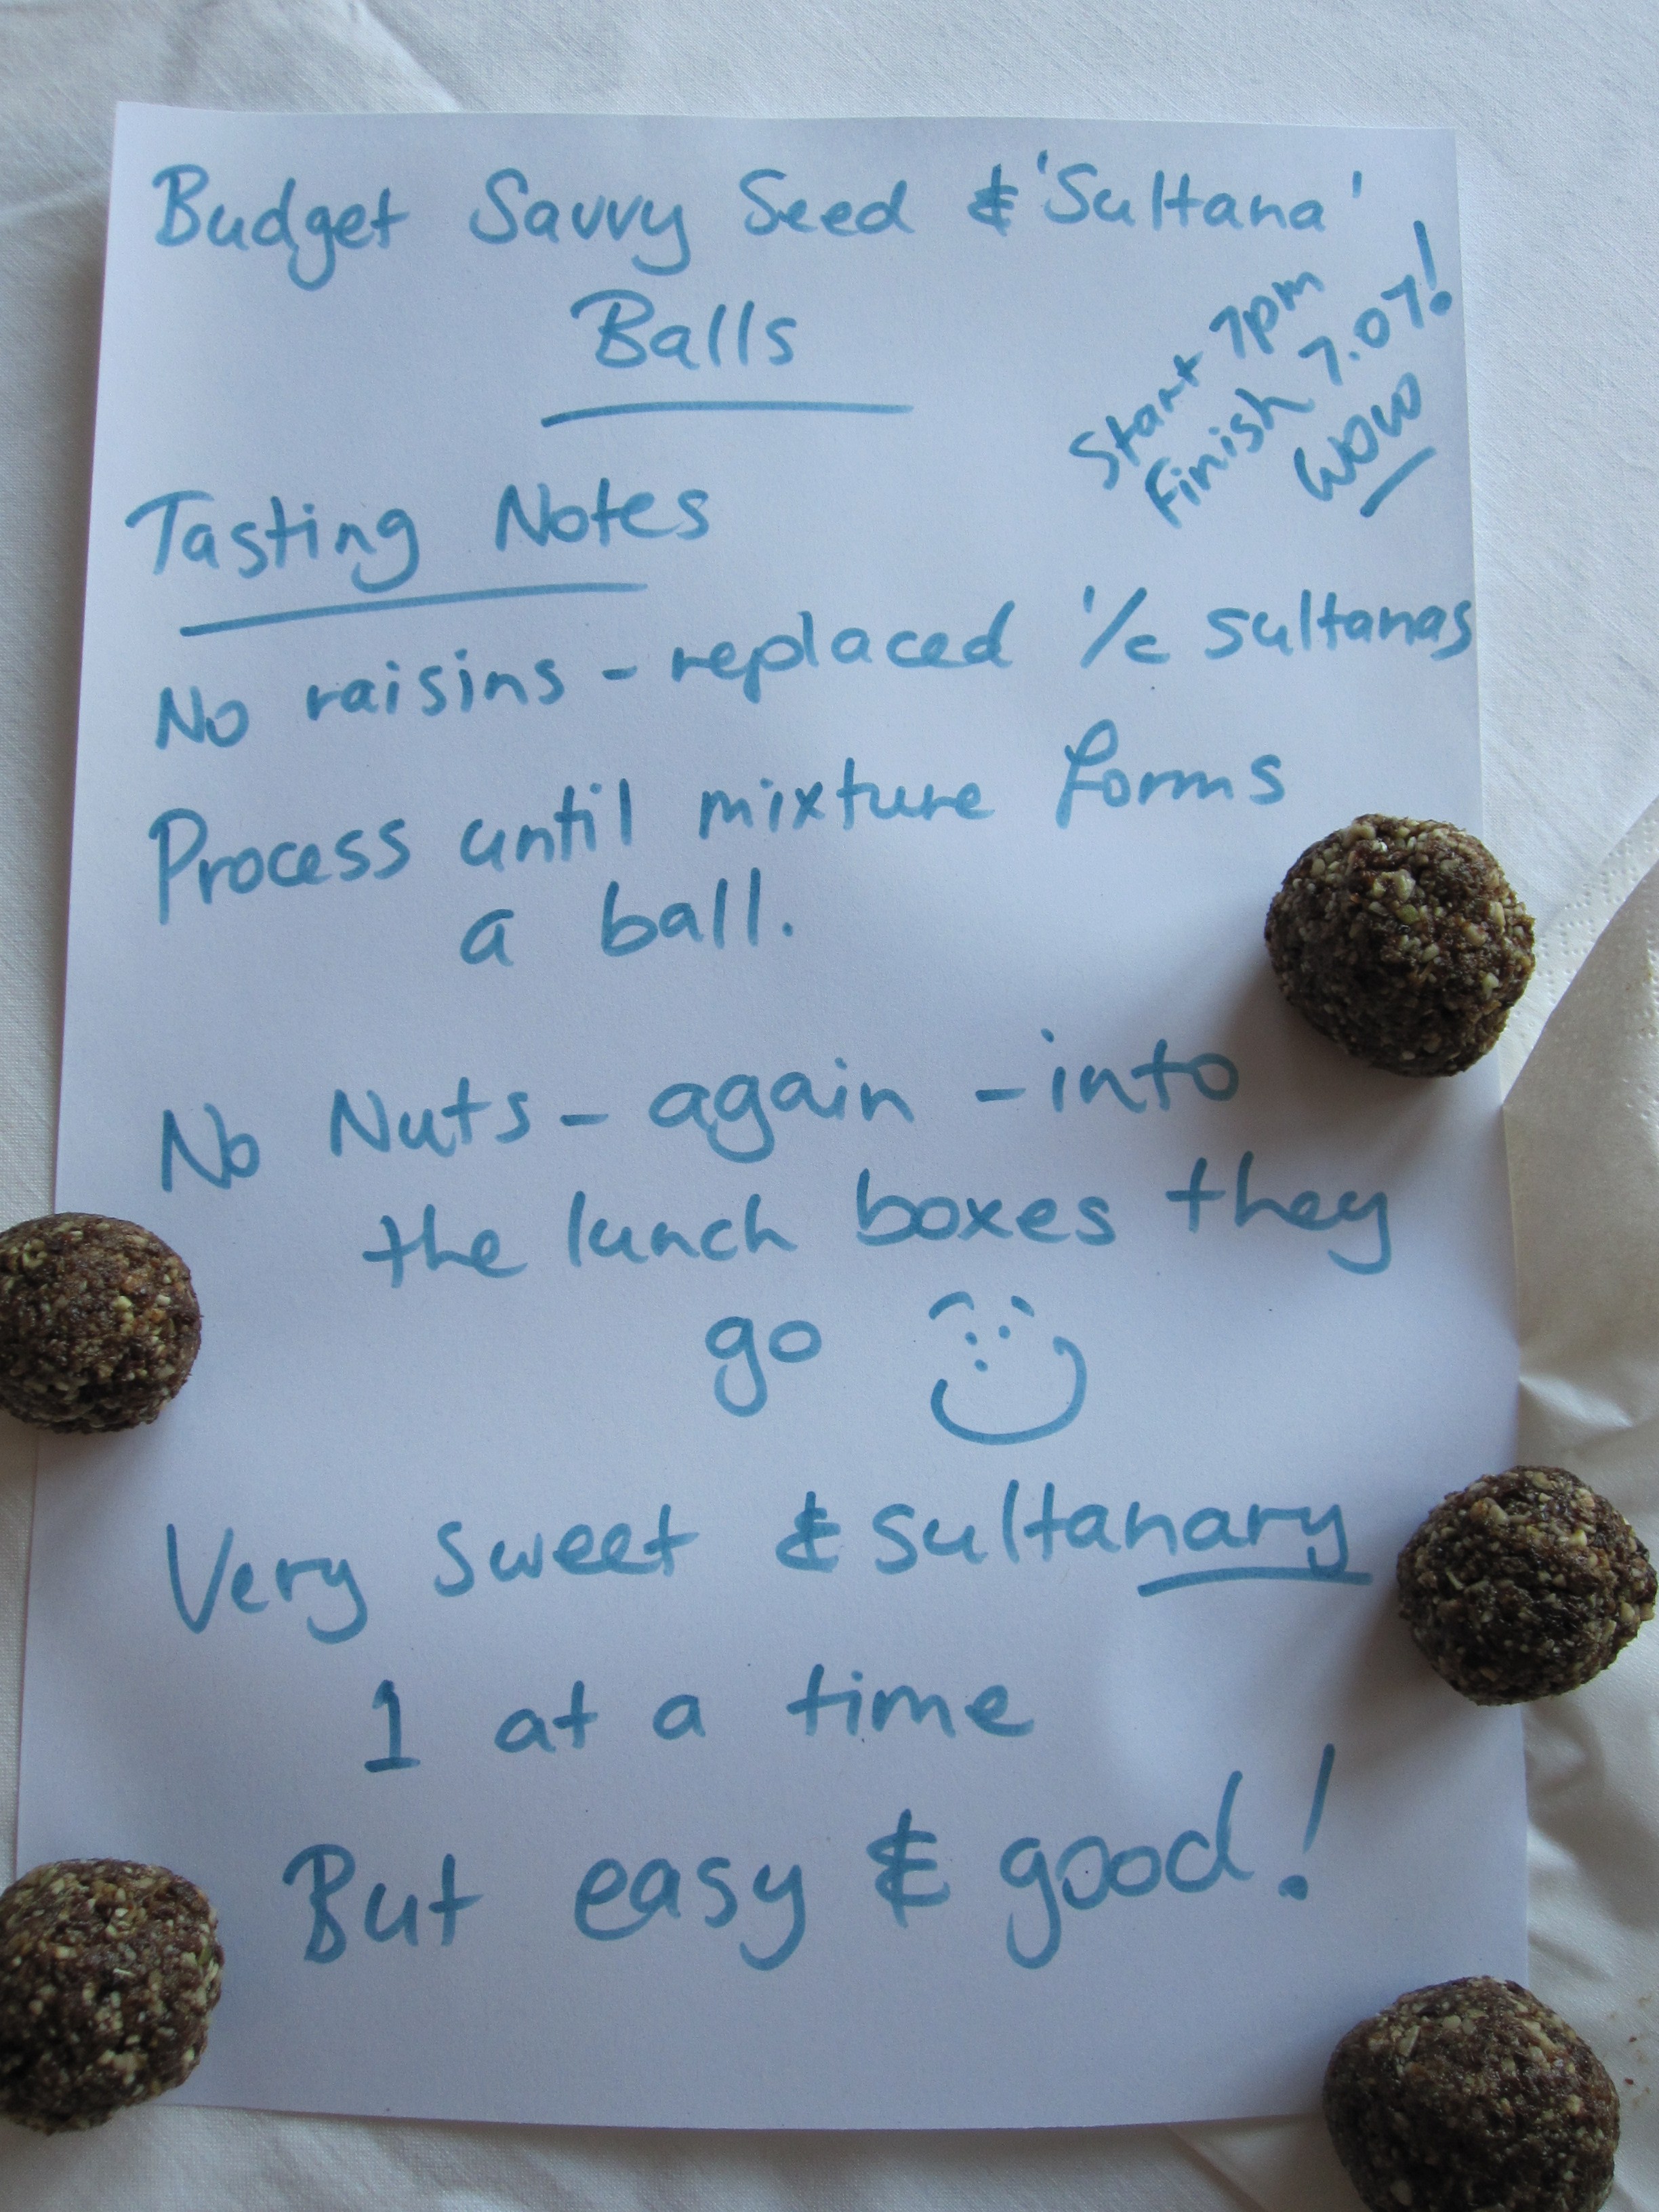 Budget Savvy Seed & 'Sultana'
Balls
Start 7pm
Finish 7.07!
WOW
Tasting Notes
No raisins - replaced '/c sultanas
Process until mixture forms
a ball.
No Nuts - again - into
the lunch boxes they
go
Very sweet & sultanary
1 at a time
But easy & good!